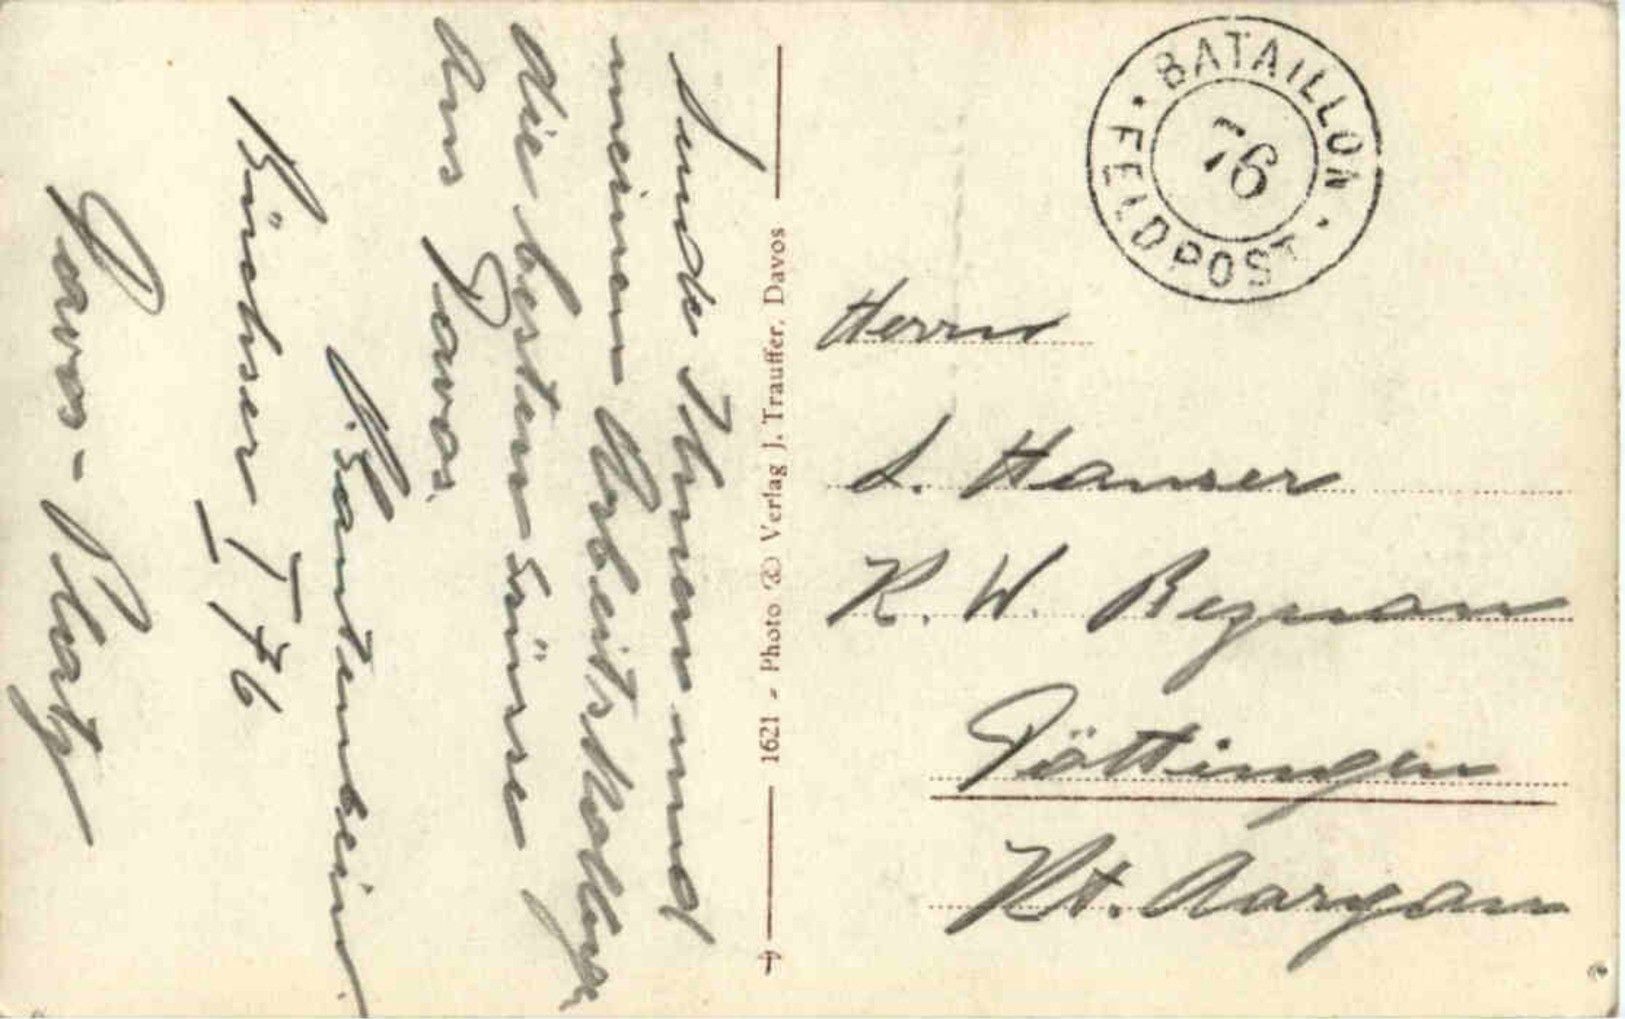 Sende Ihnen und
meinen Arbeitskollegen
die besten Grüsse
aus Davos.
Gantenbein
Büchser I 76
Davos-Platz
1621 - Photo Verlag J. Trauffer, Davos
BATAILLON
76
FELDPOST
Herrn
S. Hauser
K. W. Beznau
Döttingen
Kt. Aargau